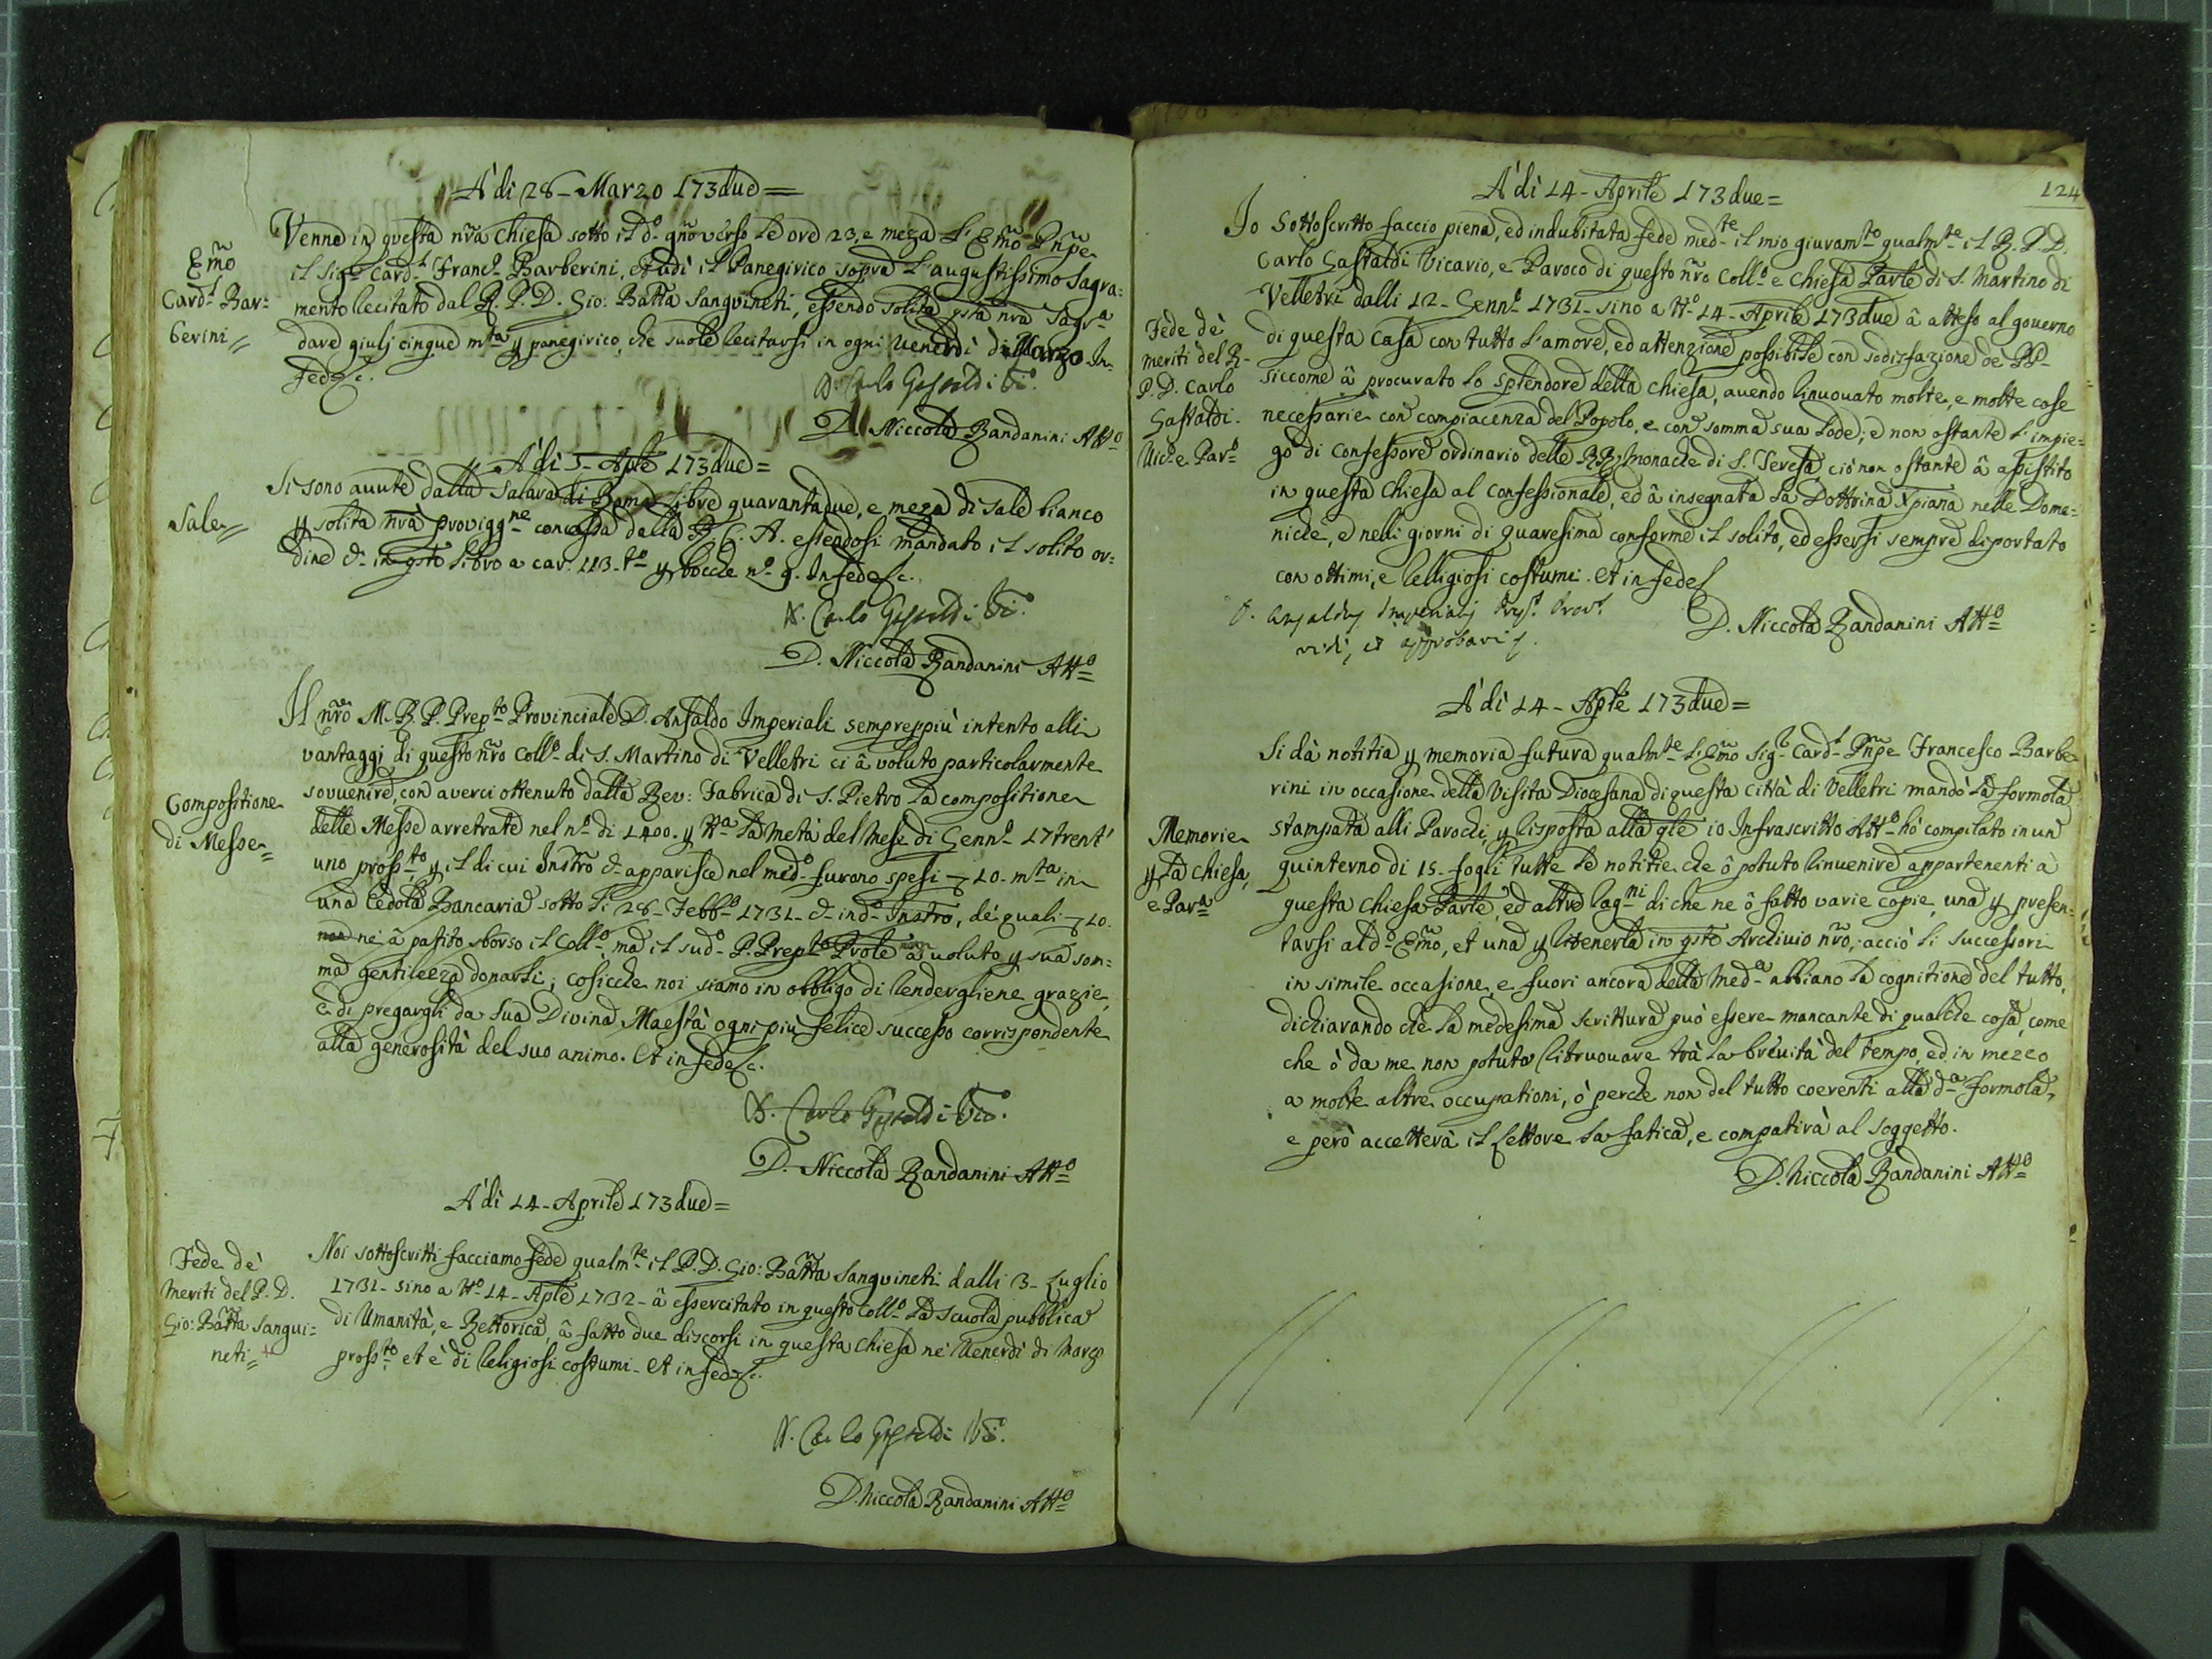 A' dì 28 - Marzo 173due =
Venne in questa nr̃a Chiesa sotto il dº gñõ verso le ore 23, e meza l' Emõ Prñpe
Emõ
Card.l Bar=
berini =
il Sig.r Card.l Franc.º Barberini, et udì il Panegirico sopra l' augustissimo Sagra=
mento recitato dal R. P. D. Gio: Batt̃a Sanguineti, essendo solita qsta nr̃a Sagr.a
dare giulj cinque m.ta p̱ panegirico, che suole recitarsi in ogni Venerdì di Marzo. In
fede &c.
D. Carlo Gastaldi Vic.º
D. Niccola Bandanini Att.º
A' dì 5 - Aple 173due =
Sale =
Si sono avute dalla Salara di Roma libre quarantadue, e meza di sale bianco
p̱ solita nr̃a provigg.ne concessa dalla R. C. A. essendosi mandato il solito or=
dine d. in qsto libro a car. 113. t.º p̱ bocche n.º 9. In fede &c.
D. Carlo Gastaldi Vic.º
D. Niccola Bandanini Att.º
Compositione
di Messe =
Il nr̃o M. R. P. Prep.to Provinciale D. Ansaldo Imperiali sempreppiù intento alli
vantaggi di questo nr̃o Coll.º di S. Martino di Velletri ci â voluto particolarmente
sovvenire, con averci ottenuto dalla Rev: Fabrica di S. Pietro la compositione
delle Messe arretrate nel n.º di 1400. p̱ tt.a la metà del Mese di Genn.º 17trent'
uno pross.to, p̱ il di cui Instr̃o d. apparisce nel med.º furono spesi 10. m.ta in
una Cedola Bancaria sotto li 28 - Febb.º 1731 - d. ind.º Instro, de' quali 10.
non ne â patito sborso il Coll.º, ma il sud.º P. Prep.to Prole â voluto p̱ sua som=
ma gentilezza donarli; cosicche noi siamo in obbligo di rendergliene grazie,
e di pregargli da Sua Divina Maestà ogni più felice successo corrispondente
alla generosità del suo animo. Et in fede &c.
D. Carlo Gastaldi Vic.º
D. Niccola Bandanini Att.º
A' dì 14 - Aprile 173due =
Fede de'
meriti del P. D.
Gio: Batt̃a Sangui=
neti =
Noi sottoscritti facciamo fede qualm.te il P. D. Gio: Batt̃a Sanguineti dalli 3 - Luglio
1731 - sino a tt.º 14 - Aple 1732 - â essercitato in questo Coll.º la scuola pubblica
di Umanità, e Rettorica, â fatto due discorsi in questa Chiesa ne' Venerdì di Marzo
pross.to et è di religiosi costumi. Et in fede &c.
D. Carlo Gastaldi Vic.º
D. Niccola Bandanini Att.º
124
A' dì 14 - Aprile 173due =
Fede de'
meriti del R.
P. D. Carlo
Gastaldi
Vic.º e Par.º
Io sottoscritto faccio piena, ed indubitata fede med.te il mio giuram.to qualm.te il R. P. D.
Carlo Gastaldi Vicario, e Paroco di questo nr̃o Coll.º e Chiesa Parle di S. Martino di
Velletri dalli 12 - Genn.º 1731 - sino a tt.º 14 - Aprile 173due â atteso al governo
di questa Casa con tutto l' amore, ed attenzione possibile con sodisfazione de PP.
siccome â procurato lo splendore della Chiesa, avendo rinuovato molte, e molte cose
necessarie con compiacenza del Popolo, e con somma sua lode; e non ostante l' impie=
go di Confessore ordinario delle RR. Monache di S. Teresa ciò non ostante â assistito
in questa Chiesa al Confessionale, ed â insegnata la Dottrina Xp̃iana nelle Dome=
niche, e nelli giorni di quaresima conforme il solito, ed essersi sempre diportato
con ottimi, e religiosi costumi. Et in fede &
D. Ansaldus Imperialis Prep.s Prov.s
vidi, et approbavi
D. Niccola Bandanini Att.º
A' dì 14 - Aple 173due =
Memorie
p̱ la Chiesa,
e Par.a
Si dà notitia p̱ memoria futura qualm.te l' Emõ Sig.r Card.l Prñpe Francesco Barbe
rini in occasione della Visita Diocesana di questa Città di Velletri mandò la formola
stampata alli Parochi, p̱ risposta alla qle io Infrascritto Att.º hò compilato in un
quinterno di 15 - fogli tutte le notitie che ô potuto rinuenire appartenenti a
questa Chiesa Parle, ed altre rag.ni di che ne ô fatto varie copie, una p̱ presen=
tarsi al d.º Emõ, et una p̱ ritenerla in qsto Archivio nr̃o, acciò li successori
in simile occasione, e fuori ancora della med.a abbiano la cognitione del tutto,
dichiarando che la medesima scrittura può essere mancante di qualche cosa, come
che ò da me non potuta ritruovare trà la brevità del tempo, ed in mezzo
a molte altre occupationi, ò perche non del tutto coerenti alla d.a formola,
e però accetterà il Lettore la fatica, e compatirà al soggetto.
D. Niccola Bandanini Att.º